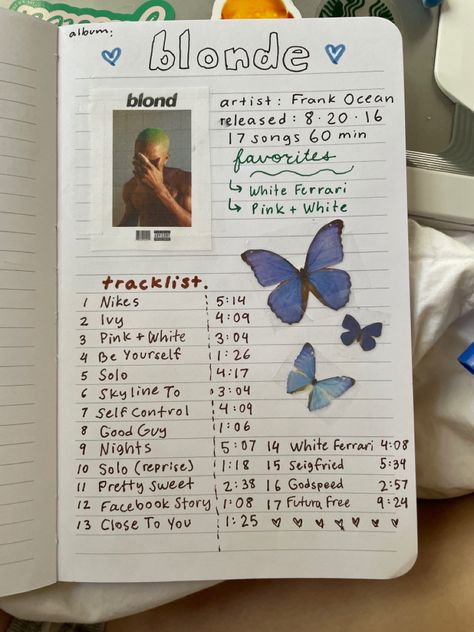 album:
blonde
blond
artist: Frank Ocean
released: 8·20·16
17 songs 60 min
favorites
↳ White Ferrari
↳ Pink + White
tracklist.
1 Nikes 5:14
2 Ivy 4:09
3 Pink + White 3:04
4 Be Yourself 1:26
5 Solo 4:17
6 Skyline To 3:04
7 Self Control 4:09
8 Good Guy 1:06
9 Nights 5:07
10 Solo (reprise) 1:18
11 Pretty Sweet 2:38
12 Facebook Story 1:08
13 Close To You 1:25
14 White Ferrari 4:08
15 Seigfried 5:34
16 Godspeed 2:57
17 Futura Free 9:24